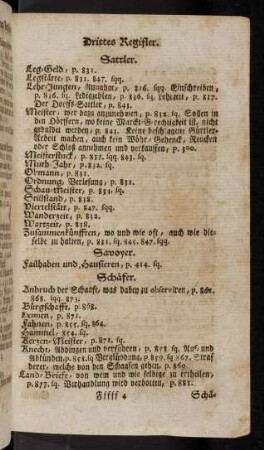 Drittes Register.
Sattler.
Leg-Geld, p. 831.
Legstätte, p. 831. 847. sqq.
Lehr-Jungen, Annahm, p. 816. sqq. Einschreiben,
p. 836. sq. Ledigzehlen, p. 836. sq. Lehrzeit, p. 837.
Der Dorff-Sattler, p. 843.
Meister, wer dazu anzunehmen, p. 832. sq. Sollen in
den Dörfern, wo keine Marckt-Gerechtigkeit ist, nicht
geduldet werden, p. 843. Keine beschlagene Gürtler-
Arbeit machen, auch kein Wöhr-Gehenck, Reucken
oder Schloß annehmen und verkauffen, p. 300.
Meisterstuck, p. 833. sqq. 843. sq.
Muth-Jahr, p. 832. sq.
Obmann, p. 831.
Ordnung, Verlesung, p. 831.
Schau-Meister, p. 834. sq.
Stillstand, p. 838.
Viertelstätt, p. 847. sqq.
Wanderzeit, p. 832.
Wartzeit, p. 838.
Zusammenkünfften, wo und wie oft, auch wie die-
selbe zu halten, p. 831. sq. 845. 847. sqq.
Savoyer.
Failhaben und Hausieren, p. 414. sq.
Schäfer.
Anbruch der Schaafe, was dabey zu observiren, p. 864.
868. sqq. 873.
Bürgschafft, p. 868.
Examen, p. 871.
Fahnen, p. 855. sq. 864.
Hammel, 854. sq.
Kerzen-Meister, p. 871. sq.
Knecht, Abdingen und verführen, p. 858. sq. Auf- und
Abkünden, p. 858. sq. Verpfändung, p. 859. sq. 867. sq. Straf
derer, welche von den Schaafen gehen, p. 869.
Land-Briefe, von wem und wie selbige zu ertheilen,
p. 877. sq. Verhandlung wird verbotten, p. 881.
Fffff 4
Schä-